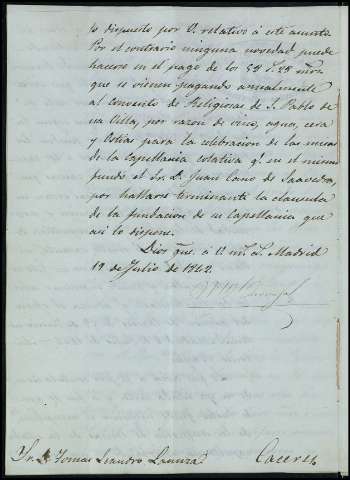 lo dispuesto por V. relativo á este asunto
Por el contrario ninguna novedad puede
hacerse en el pago de los 55 r.s 25 mrs.
que se vienen pagando anualmente
al Convento de Religiosas de S. Pablo de
esa Villa, por razon de vino, agua, cera
y Ostias para la celebracion de las misas
de la Capellania colativa q.e en el mismo
fundó el Sr. D. Juan Cano de Saavedra,
por hallarse terminante la clausula
de la fundacion de su Capellania que
asi lo dispone.
Dios gue. á V. m.s a.s Madrid
19 de Julio de 1862.
Sr. D. Tomas Leandro
Caceres